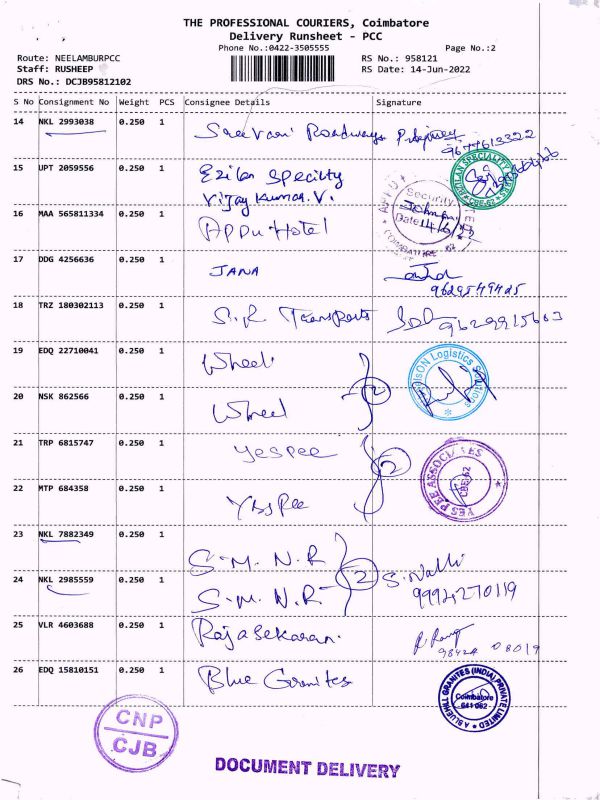 THE PROFESSIONAL COURIERS, Coimbatore
Delivery Runsheet - PCC
Phone No.:0422-3505555
Page No.:2
Route: NEELAMBURPCC
RS No.: 958121
Staff: RUSHEEP
RS Date: 14-Jun-2022
DRS No.: DCJB95812102
S No Consignment No Weight PCS Consignee Details Signature
14 NKL 2993038 0.250 1 Roadways
9677613322
15 UPT 2059556 0.250 1 Ezilan Specilty
Vijay Kumar. V.
16 MAA 565811334 0.250 1 Appu Hotel
Security
Date 14/6/22
17 DDG 4256636 0.250 1 JANA
9629579425
18 TRZ 180302113 0.250 1 S.R. Transports
9629915663
19 EDQ 22710041 0.250 1 Wheel
Logistics Solutions
20 NSK 862566 0.250 1 Wheel
2
21 TRP 6815747 0.250 1 yespee
2
YES PEE ASSOCIATES
CBE-62
22 MTP 684358 0.250 1 Yes Pee
23 NKL 7882349 0.250 1 S.M.N.R
2 S. Valli
24 NKL 2985559 0.250 1 S.M.N.R
9994270119
25 VLR 4603688 0.250 1 Rajasekaran.
26 EDQ 15810151 0.250 1 Blue Granites
A BLUEHILL GRANITES (INDIA) PRIVATE LIMITED
Coimbatore
641 062
CNP
CJB
DOCUMENT DELIVERY